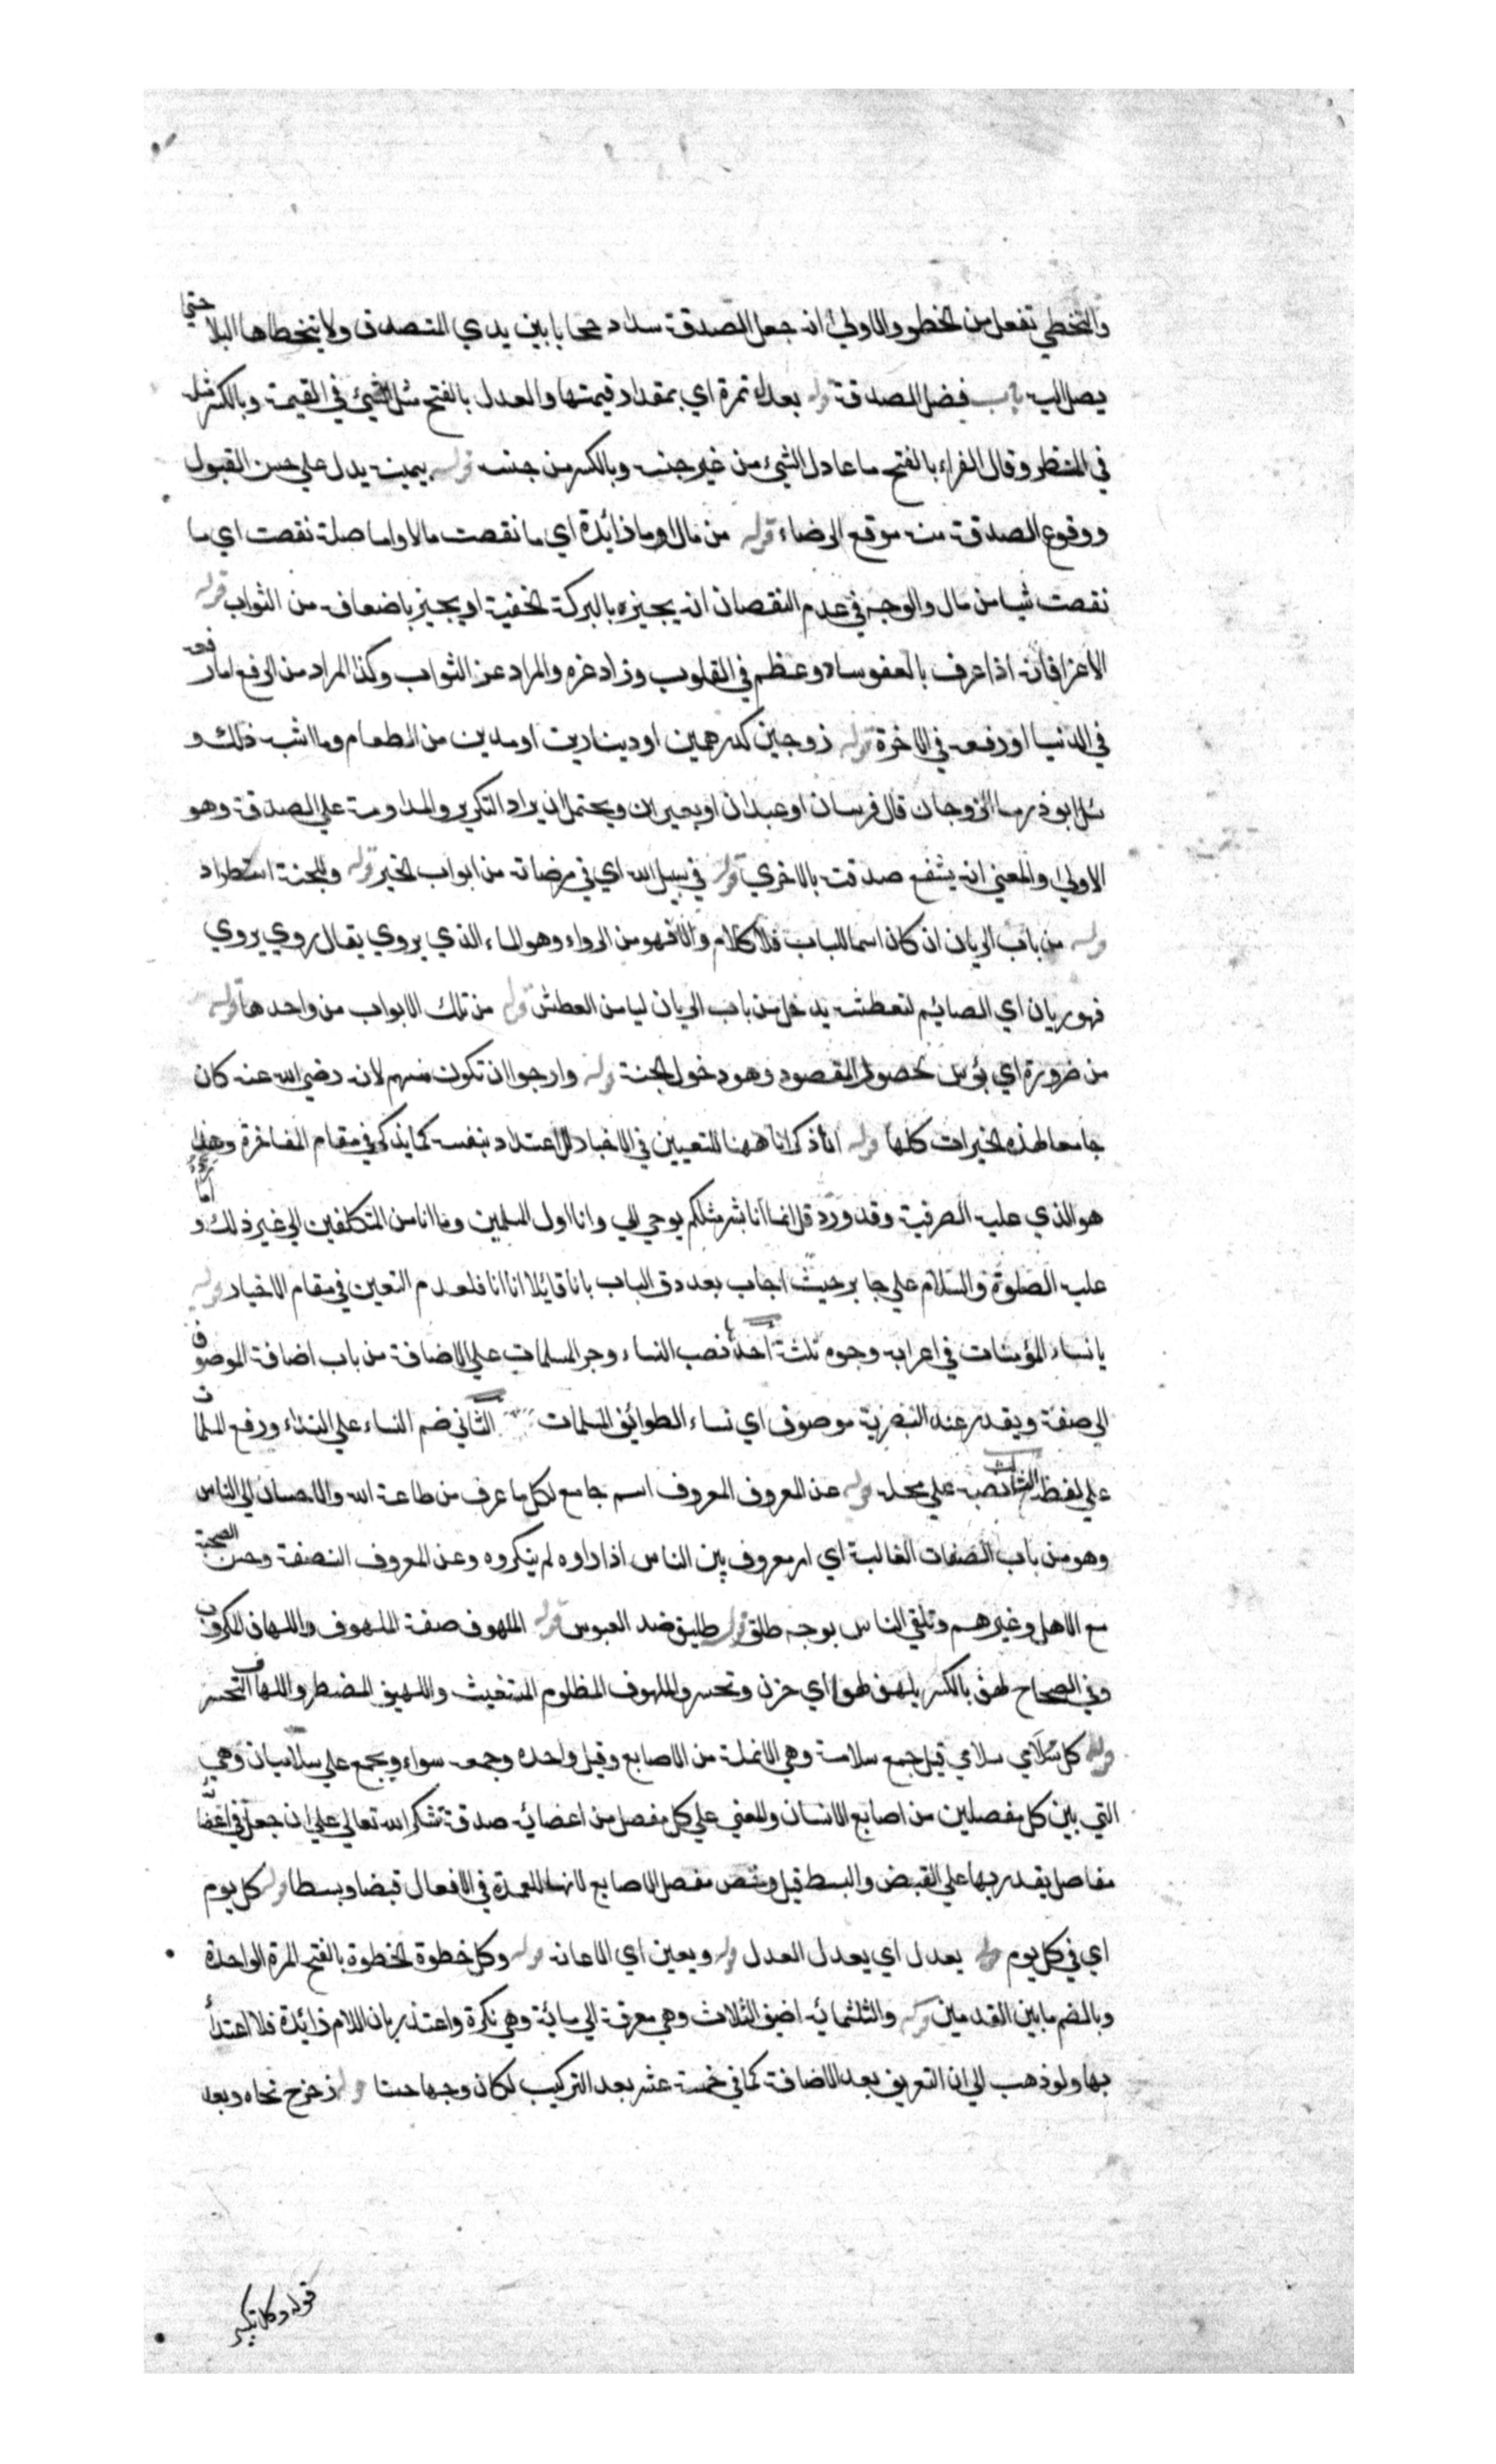 والتخطي تفعل من الخطو والاولى انه جعل الصدقة سدا وحجابا بين يدي المتصدق ولا يتخطاها البلا حتى
يصل اليه باب فضل الصدقة قوله بعدل تمرة اي بمقدار قيمتها والعدل بالفتح مثل الشيء في القيمة وبالكسر مثله
في المنظر وقال الفراء بالفتح ما عادل الشيء من غير جنسه وبالكسر من جنسه قوله بيمينه يدل على حسن القبول
ووقوع الصدقة منه موقع الرضاء قوله من مال او ما زائدة اي ما نقصت مالا واما صلة نقصت اي ما
نقصت شيا من مال والوجه في عدم النقصان انه يجيزه بالبركة الخفية او يجيز باضعافه من الثواب قوله
الا عزا فانه اذا عرف بالعفو ساد وعظم في القلوب وزاد عزه والمراد عز الثواب وكذا المراد من الرفع اما رفعه
في الدنيا او رفعه في الاخرة قوله زوجين كدرهمين او دينارين او مدين من الطعام وما اشبه ذلك و
سئل ابو ذر ما الزوجان قال فرسان او عبدان او بعيران ويحتمل ان يراد التكرير والمداومة على الصدقة وهو
الاولى والمعنى انه يشفع صدقته بالاخري قوله في سبيل الله اي في مرضاته من ابواب الخير قوله وللجنة استطراد
قوله من باب الريان ان كان اسما للباب فلا كلام والا فهو من الرواء وهو الماء الذي يروي يقال روي يروي
فهو ريان اي الصائم لتعطشه يدخل من باب الريان ليامن العطش قوله من تلك الابواب من واحدها قوله
من ضرورة اي بؤس لحصول المقصود وهو دخول الجنة قوله وارجوا ان تكون منهم لانه رضي الله عنه كان
جامعا لهذه الخيرات كلها قوله انا ذكر انا ههنا للتعيين في الاخبار لا للاعتداد بنفسه كما يذكر في مقام المفاخرة وهذا
هو الذي عليه الصوفية وقد ورد قل انما انا بشر مثلكم يوحي الي وانا اول المسلمين وما انا من المتكلفين الى غير ذلك و اما
عليه الصلوة والسلام على جابر حيث اجاب بعد دق الباب بانا قائلا انا انا فلعدم التعين في مقام الاخبار قوله
يا نساء المؤمنات في اعرابه وجوه ثلثة احدها نصب النساء وجر المسلمات على الاضافة من باب اضافة الموصوف
الى صفة ويقدر عند البصرية موصوف اي نساء الطوائف المسلمات الثاني ضم النساء على النداء ورفع المسلمات
على لفظه الثالث نصبه على محله قوله عن المعروف المعروف اسم جامع لكل ما عرف من طاعة الله والاحسان الى الناس
وهو من باب الصفات الغالبة اي امر معروف بين الناس اذا راوه لم ينكروه وعن المعروف النصفة وحسن الصحبة
مع الاهل وغيرهم وتلقي الناس بوجه طلق قوله طليق ضد العبوس قوله الملهوف صفة الملهوف واللهفان المكروب
وفي الصحاح لهف بالكسر يلهف لهفا اي حزن وتحسر والملهوف المظلوم المستغيث واللهيف المضطر واللهفان المتحسر
قوله كل سلامي سلامي قيل جمع سلامية وهي الانملة من الاصابع وقيل واحده وجمعه سواء ويجمع على سلاميات وهي
التي بين كل مفصلين من اصابع الانسان والمعنى على كل مفصل من اعضائه صدقة شكرا لله تعالى على ان جعل في اعضائه
مفاصل يقدر بها على القبض والبسط قيل وخص مفصل الاصابع لانها العمدة في الافعال قبضا وبسطا قوله كل يوم
اي في كل يوم قوله يعدل اي يعدل العدل قوله ويعين اي الاعانه قوله وكل خطوة الخطوة بالفتح المرة الواحدة
وبالضم ما بين القدمين قوله والثلثمائه اضيف الثلاث وهي معرفة الى مائة وهي نكرة واعتذر بان اللام زائدة فلا اعتداد
بها ولو ذهب الى ان التعريف بعد الاضافة كما في خمسة عشر بعد التركيب لكان وجها حسنا قوله زحزح نحاه وبعد
قوله وكل تكبير